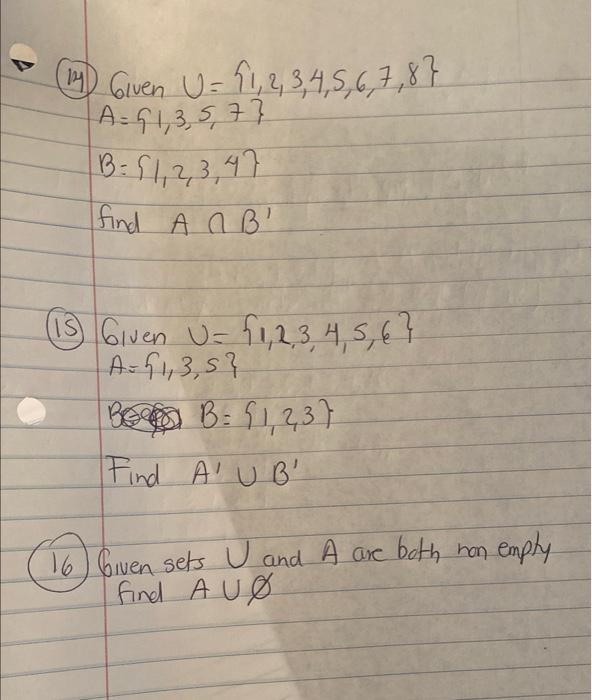 14 Given U = {1,2,3,4,5,6,7,8}
A = {1,3,5,7}
B = {1,2,3,4}
find A ∩ B'
15 Given U = {1,2,3,4,5,6}
A = {1,3,5}
B = {1,2,3}
Find A' ∪ B'
16 Given sets U and A are both non empty
find A ∪ Ø